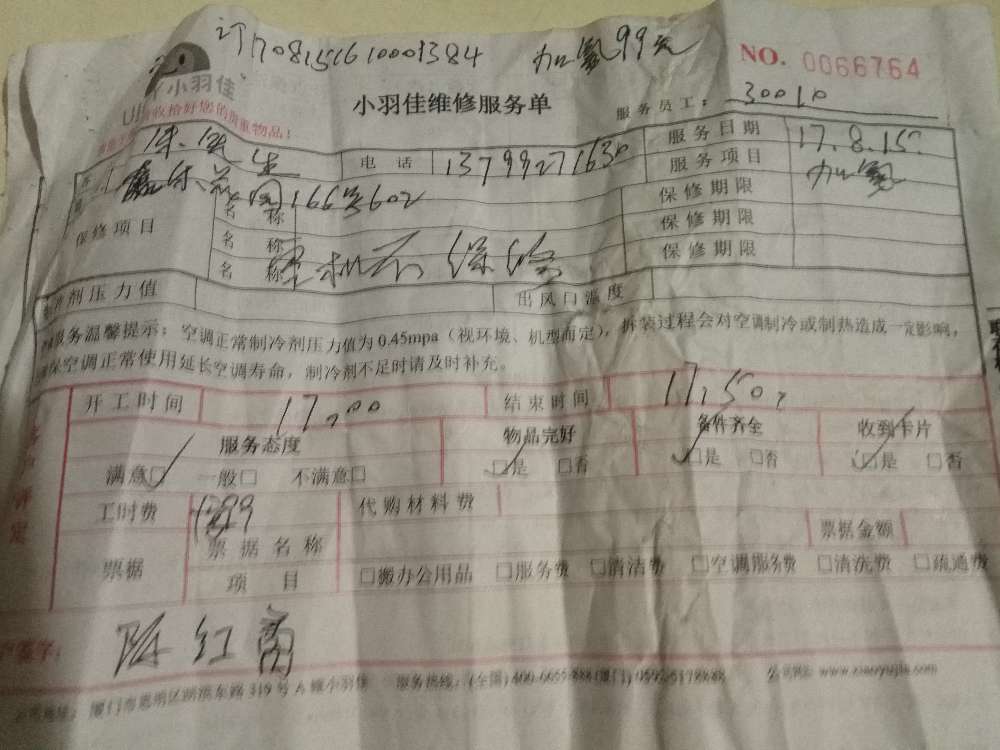 订1708151610001384 加氟99元
NO. 0066764
小羽佳
收拾好您的贵重物品!
小羽佳维修服务单
服务员工: 30010
电话 服务日期 17.8.15
166号602 服务项目 加氟
保修项目 名称 保修期限
名称 保修期限
名称 单机不保修 保修期限
剂压力值 出风口温度
服务温馨提示: 空调正常制冷剂压力值为0.45mpa (视环境、机型而定), 拆装过程会对空调制冷或制热造成一定影响,
保空调正常使用延长空调寿命, 制冷剂不足时请及时补充。
开工时间 17.00 结束时间 17.50
服务态度 物品完好 备件齐全 收到卡片
满意□ 一般□ 不满意□ □是 □否 □是 □否 □是 □否
工时费 代购材料费
票据 票据名称 票据金额
项目 □搬办公用品 □服务费 □清洁费 □空调服务费 □清洗费 □疏通费
陈红
厦门市思明区湖滨东路319号A 小羽佳 服务热线: (全国)